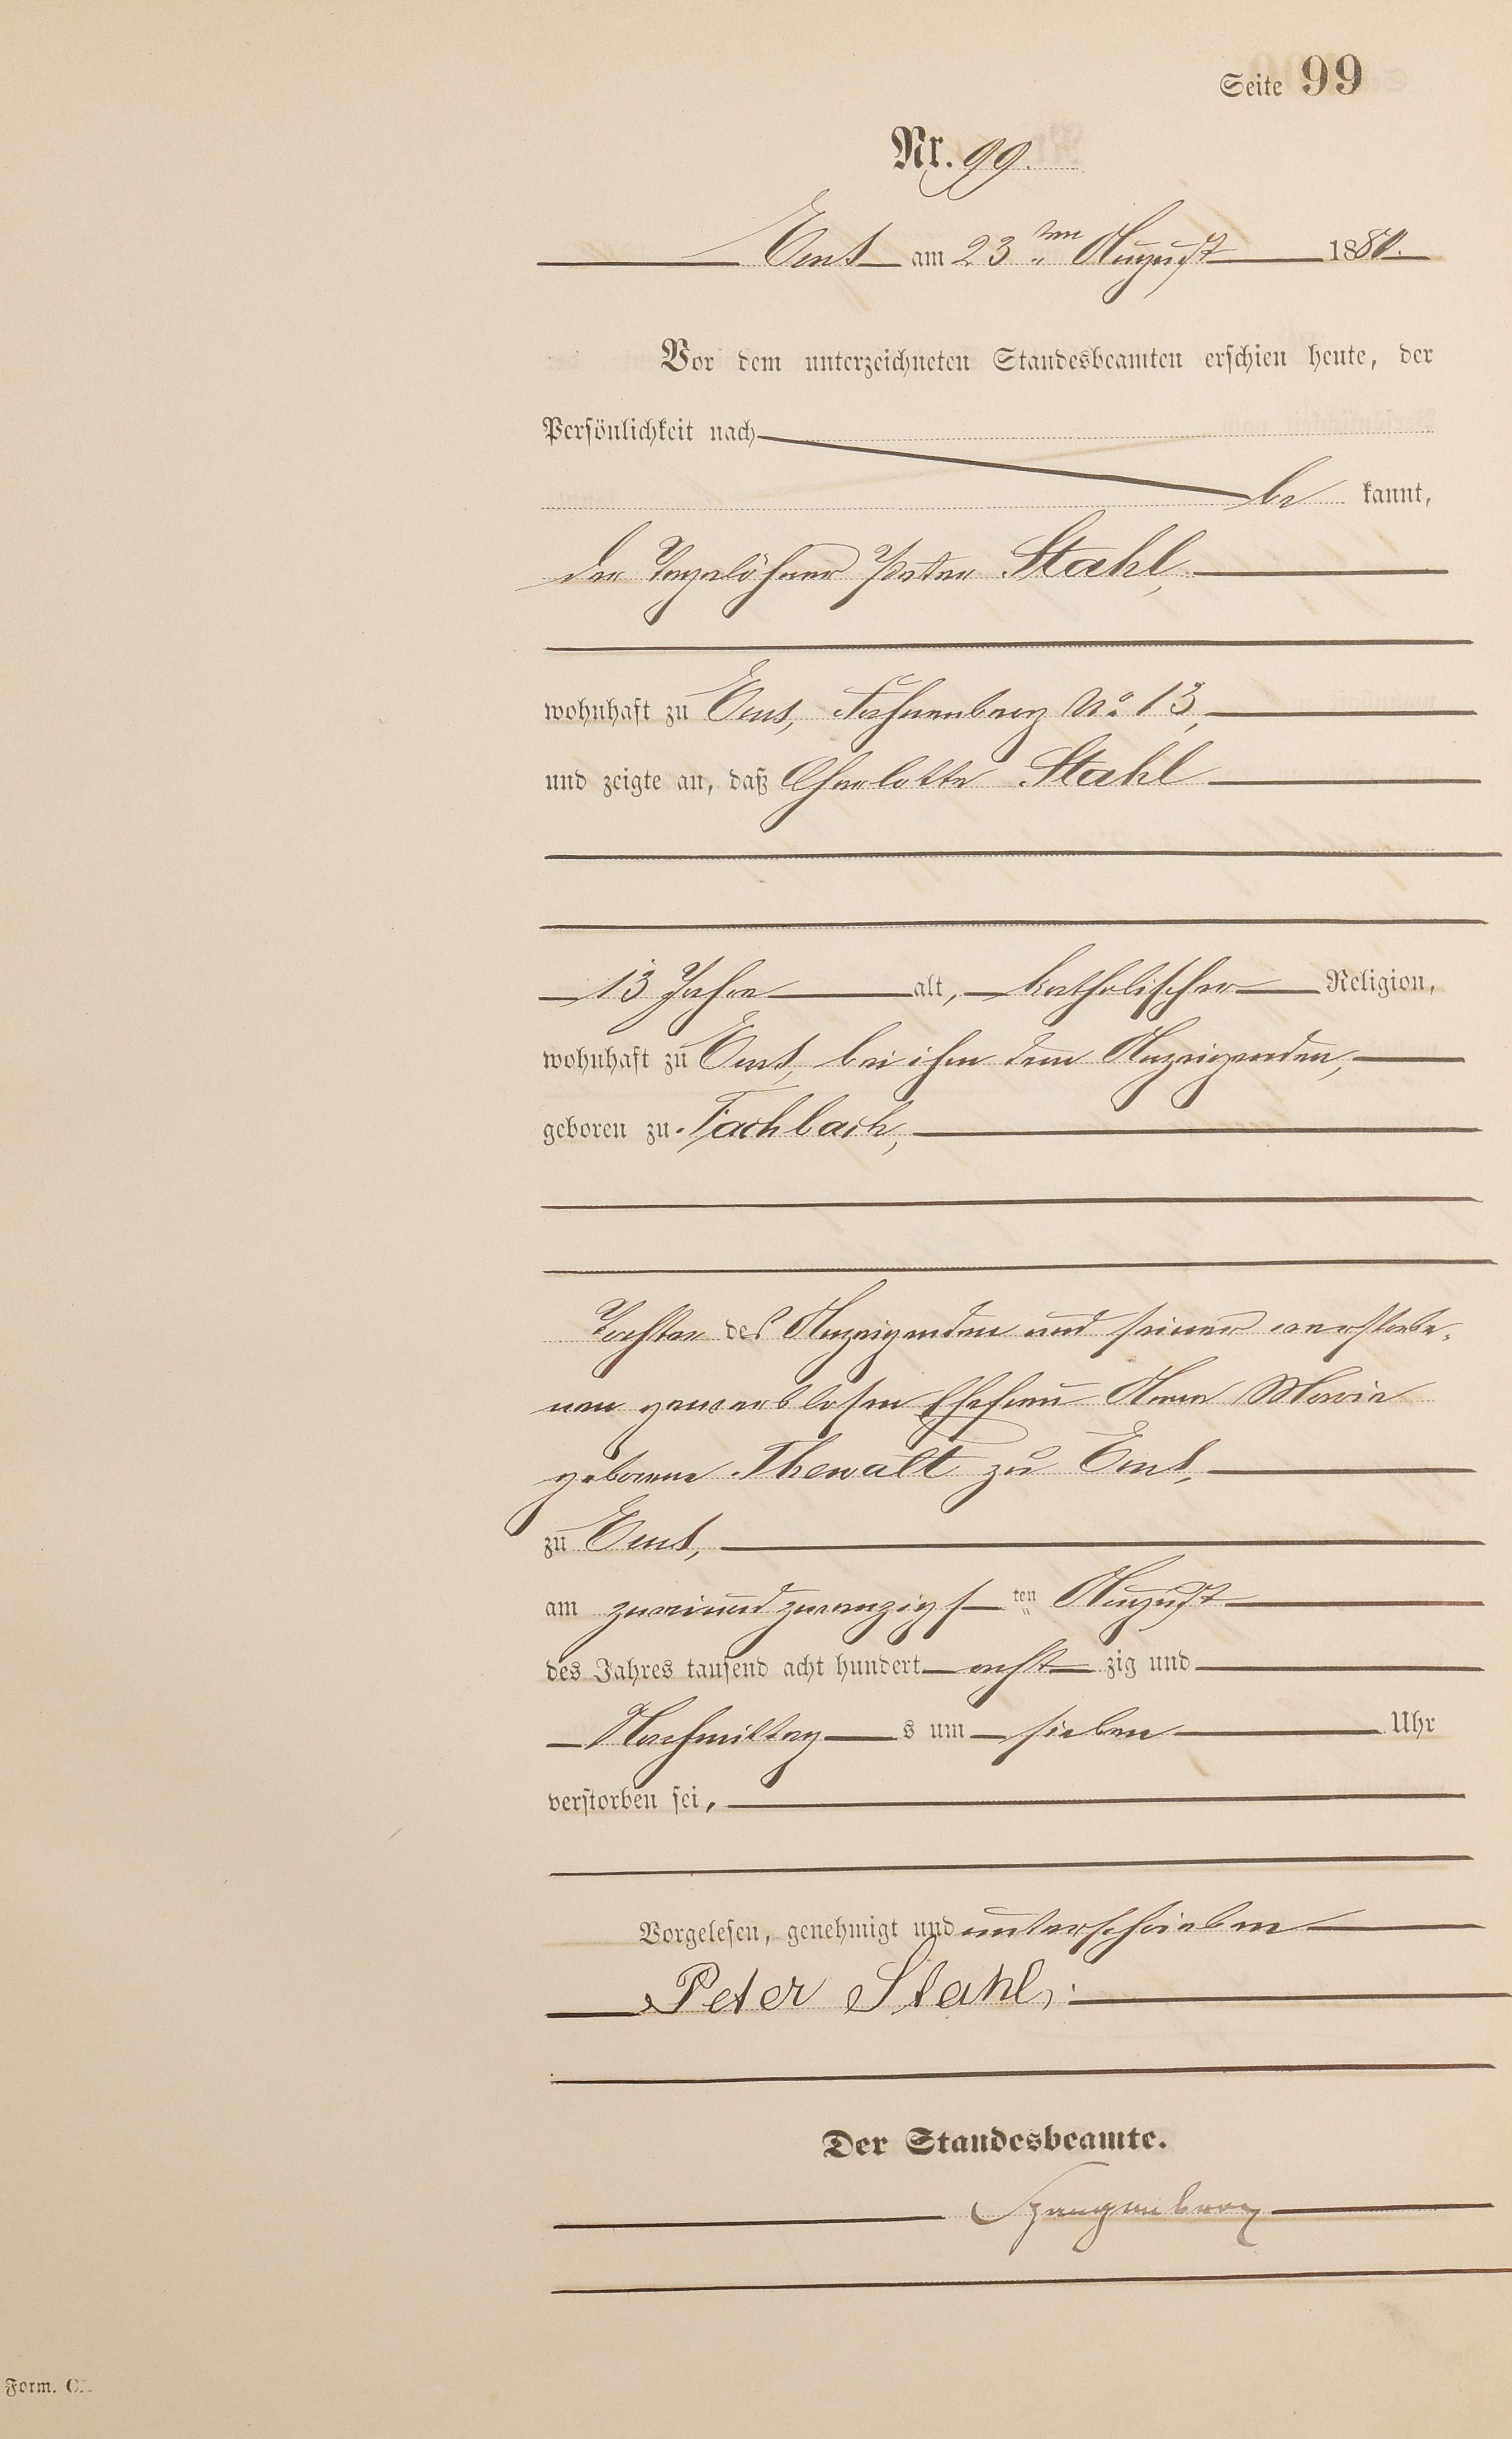 Seite 99
Nr. 99.
Ems am 23ten August 1880.
Vor dem unterzeichneten Standesbeamten erschien heute, der
Persönlichkeit nach
be kannt,
der Tagelöhner Peter Stahl,
wohnhaft zu Ems, Fahnenberg No 13,
und zeigte an, daß Charlotte Stahl
13 Jahre alt, katholischer Religion,
wohnhaft zu Ems, bei ihm dem Anzeigenden,
geboren zu Fachbach,
Tochter des Anzeigenden und seiner verstorbe-
nen gewerblosen Ehefrau Anna Maria
geborene Thewalt zu Ems,
zu Ems,
am zweiundzwanzigsten August
des Jahres tausend acht hundert achtzig und
Nachmittags um sieben Uhr
verstorben sei,
Vorgelesen, genehmigt und unterschrieben
Peter Stahl,
Der Standesbeamte.
Spangenberg
Form. C.